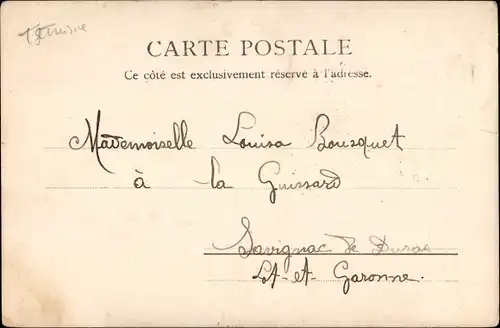 Tunisie
CARTE POSTALE
Ce côté est exclusivement réservé à l'adresse.
Mademoiselle Louisa Bousquet
à la Guissard
Savignac de Duras
Lot-et-Garonne.